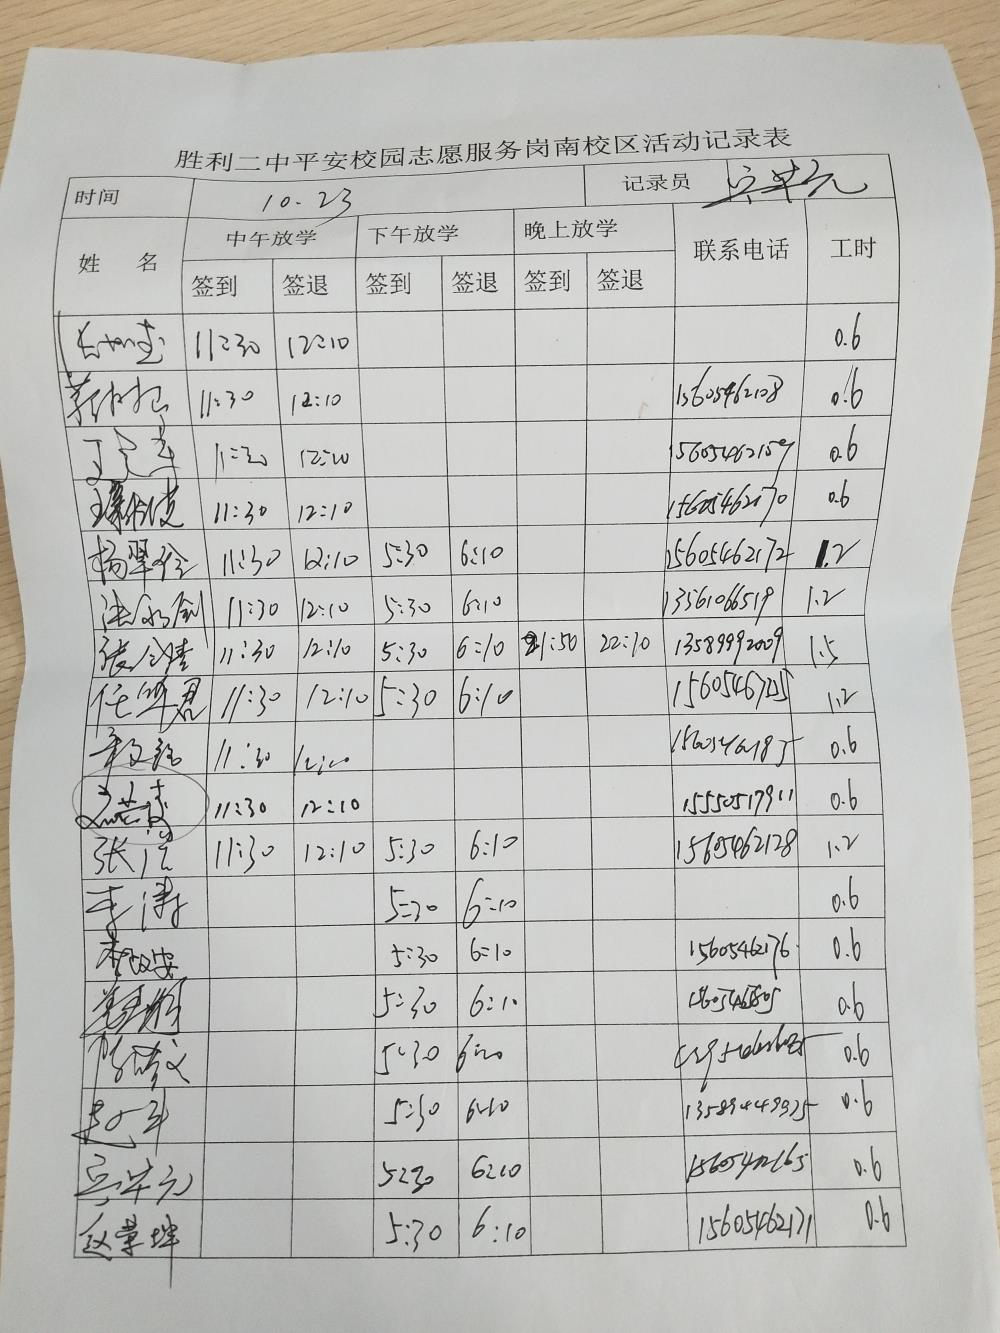 胜利二中平安校园志愿服务岗南校区活动记录表
时间 10.23 记录员
姓 名 中午放学 下午放学 晚上放学 联系电话 工时
签到 签退 签到 签退 签到 签退
11:30 12:10 0.6
11:30 12:10 15605462108 0.6
11:30 12:10 15605462159 0.6
11:30 12:10 15605462170 0.6
杨翠玲 11:30 12:10 5:30 6:10 15605462172 1.2
11:30 12:10 5:30 6:10 13561066519 1.2
张 11:30 12:10 5:30 6:10 21:50 22:10 13589992009 1.5
任华君 11:30 12:10 5:30 6:10 1.2
11:30 12:10 15605462185 0.6
11:30 12:10 15550517911 0.6
张浩 11:30 12:10 5:30 6:10 15605462128 1.2
李涛 5:30 6:10 0.6
5:30 6:10 15605462176 0.6
5:30 6:10 0.6
5:30 6:10 0.6
5:30 6:10 13589449935 0.6
5:30 6:10 15605462165 0.6
赵荣坤 5:30 6:10 15605462171 0.6